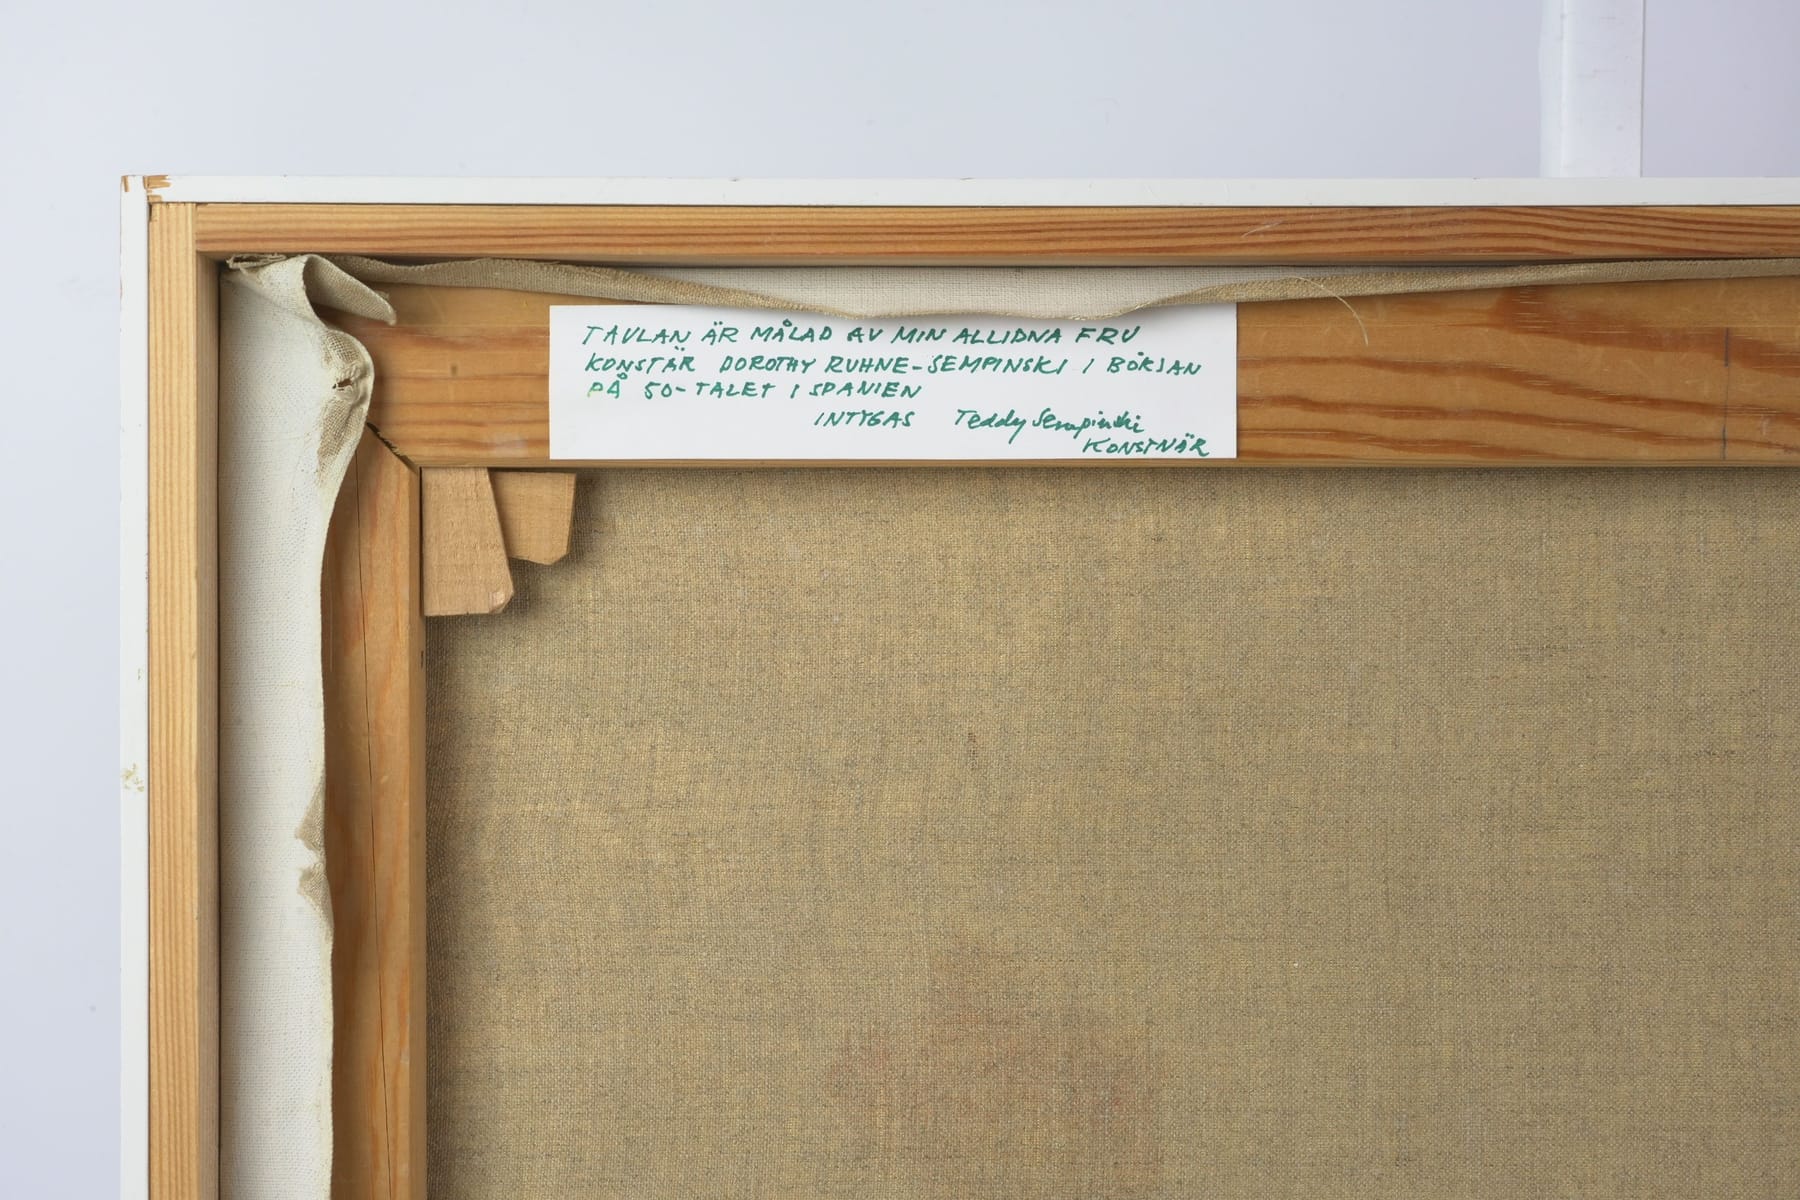 TAVLAN ÄR MÅLAD AV MIN ALLIDNA FRU
KONSTÄR DOROTHY RUHNE-SEMPINSKI I BÖRJAN
PÅ 50-TALET I SPANIEN
INTYGAS Teddy Sempinski
KONSTNÄR